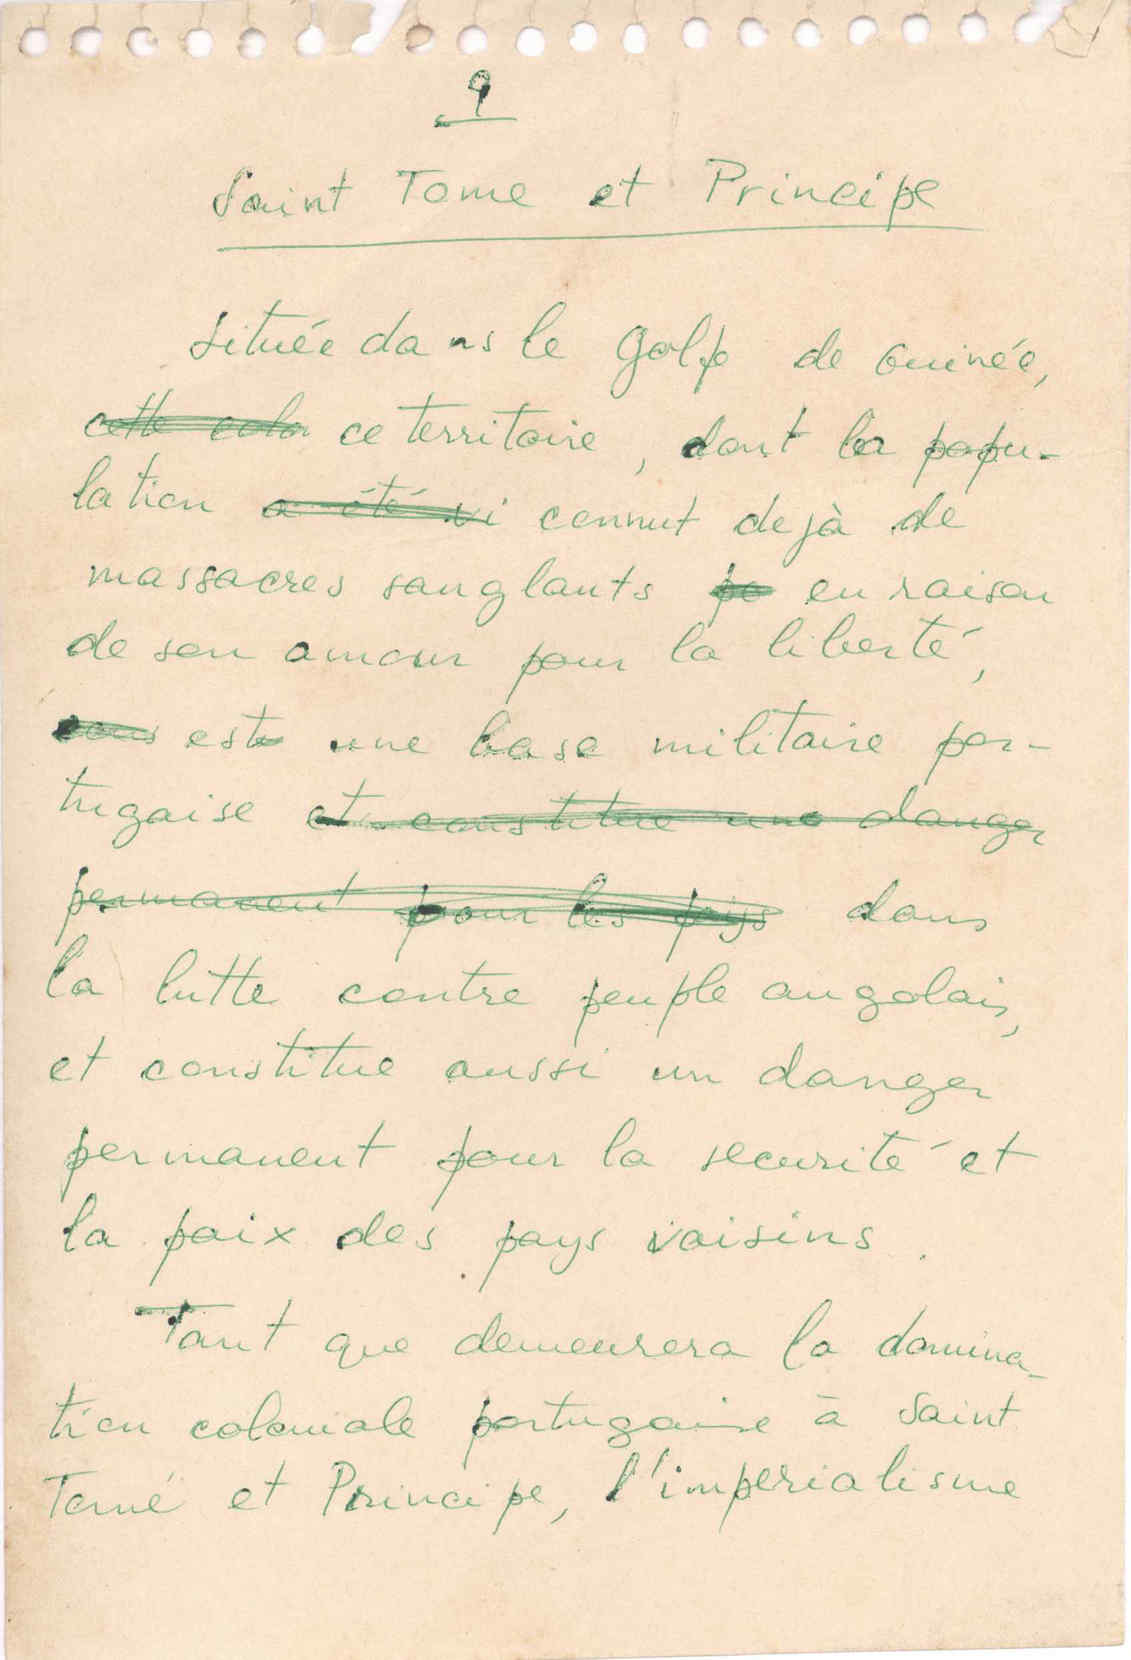 9
Saint Tome et Principe
Située dans le golfe de Guinée,
cette colo ce territoire, dont la popu-
lation a été vi connut dejà de
massacres sanglants po en raison
de son amour pour la liberté,
est une base militaire por-
tugaise et constitue une danger
permanent pour les pays dans
la lutte contre peuple angolais,
et constitue aussi un danger
permanent pour la securité et
la paix des pays voisins.
Tant que demeurera la domina-
tion coloniale portugaise à Saint
Tomé et Principe, l'imperialisme